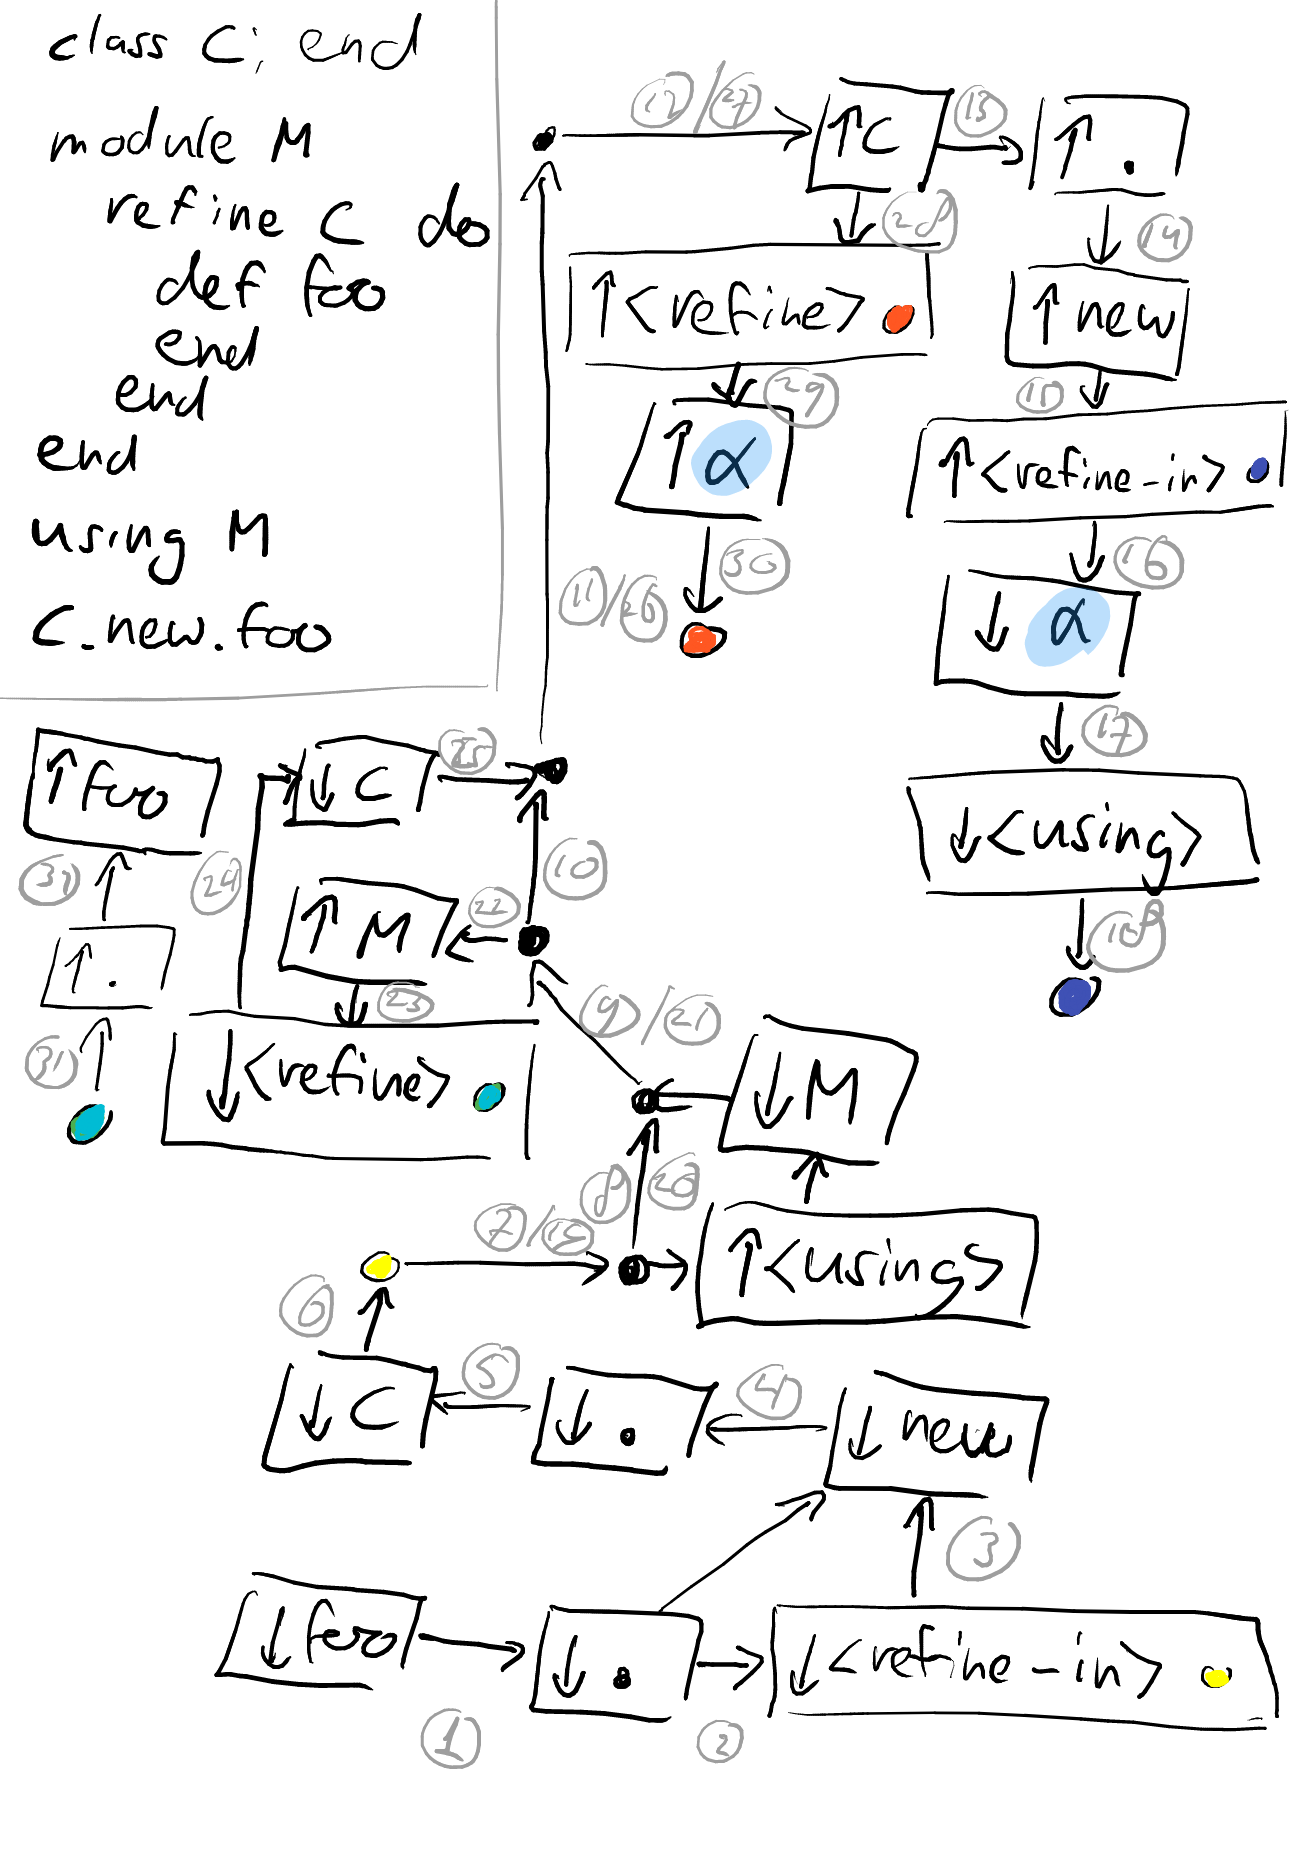 class C; end
module M
refine C do
def foo
end
end
end
using M
C.new.foo
12/27
↑C
13
↑.
28
14
↑<refine>
↑new
29
15
↑α
↑<refine-in>
30
16
11/26
↓α
17
↓<using>
18
↑foo
↓C
25
24
10
32
↑M
22
↑.
23
9/21
31
↓<refine>
↓M
8
20
7/19
↑<using>
6
↓C
5
↓.
4
↓new
3
↓foo
↓.
↓<refine-in>
1
2